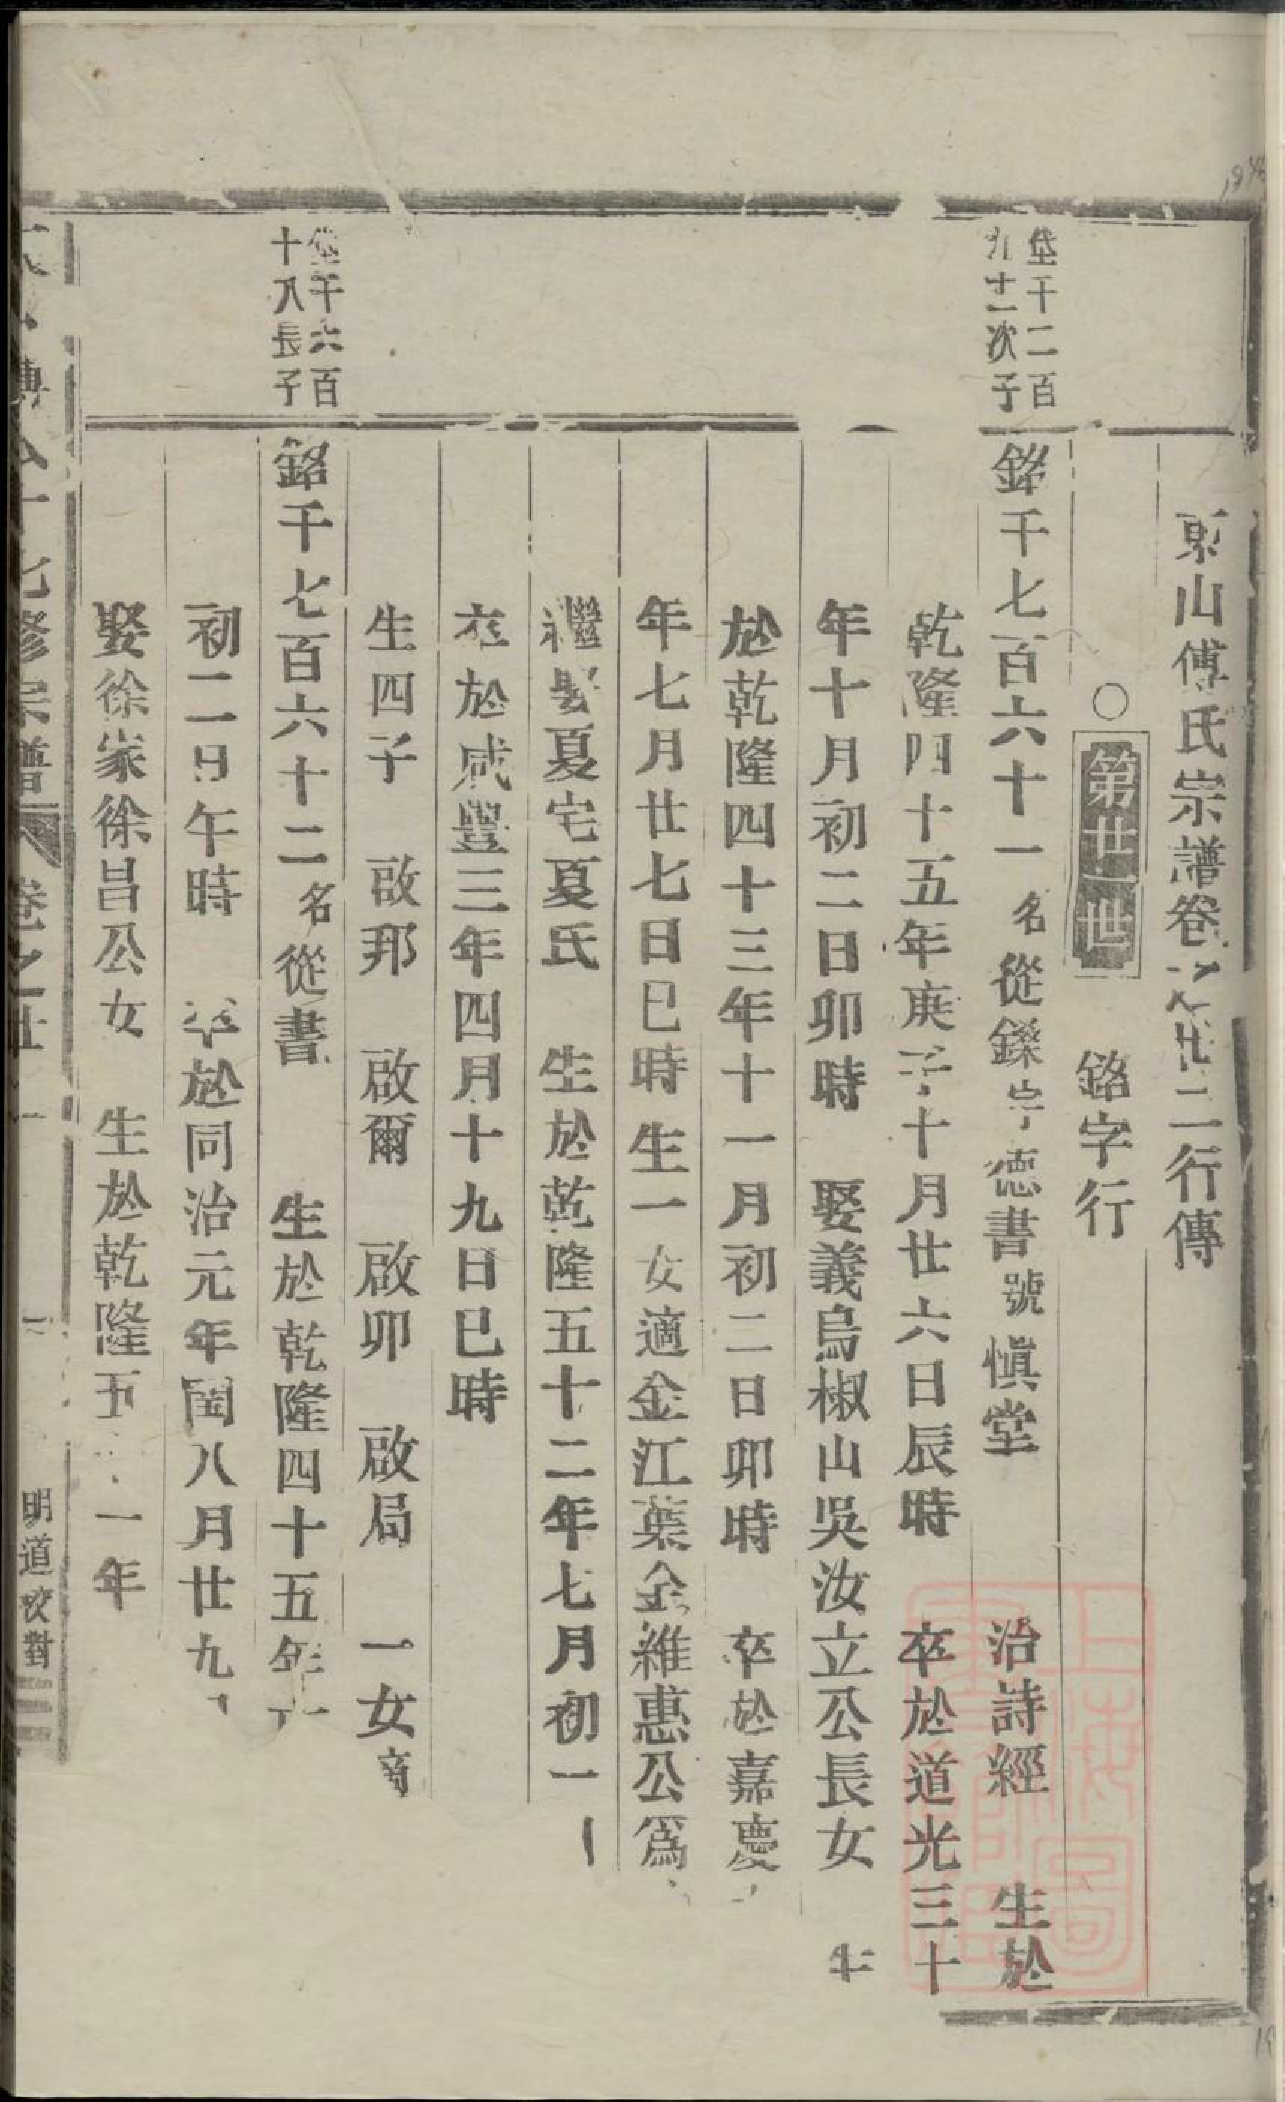 東山傅氏宗譜卷之廿二行傳
○第廿一世 銘字行
垡千二百
九十一次子
銘千七百六十一名從鑠字德書號愼堂 治詩經 生於
乾隆四十五年庚子十月廿六日辰時 卒於道光三十
年十月初二日卯時 娶義烏椒山吳汝立公長女 生
於乾隆四十三年十一月初二日卯時 卒於嘉慶
年七月廿七日巳時生一女適金江葉金維惠公爲
繼娶夏宅夏氏 生於乾隆五十二年七月初一
卒於咸豐三年四月十九日巳時
生四子 啟邦 啟爾 啟卯 啟局 一女適
垡千六百
十八長子
銘千七百六十二名從書 生於乾隆四十五年
初二日午時 卒於同治元年閏八月廿九
娶徐家徐昌公女 生於乾隆五 一年
傅 修宗譜 卷之廿
明道校對